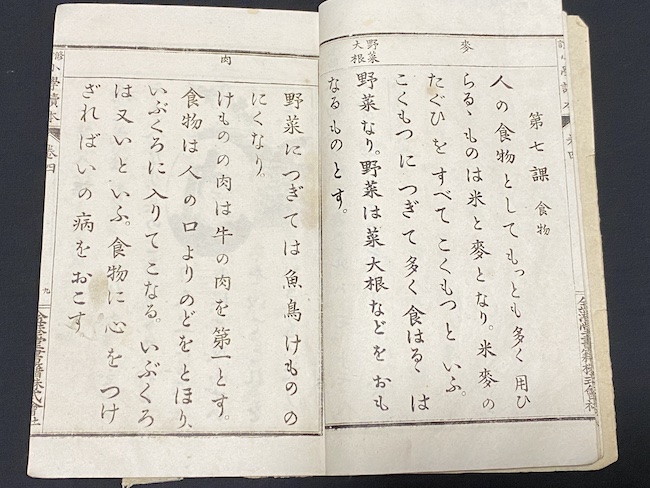 麥
野菜
大根
第七課 食物
人の食物としてもっとも多く用ひ
らるゝものは米と麥となり。米麥の
たぐひをすべてこくもつといふ。
こくもつにつぎて多く食はるゝは
野菜なり。野菜は菜大根などをおも
なるものとす。
肉
野菜につぎては魚鳥けものの
にくなり。
けものの肉は牛の肉を第一とす。
食物は人の口よりのどをとほり、
いぶくろに入りてこなる。いぶくろ
は又いといふ。食物に心をつけ
ざればいの病をおこす。
小學讀本
卷四
九